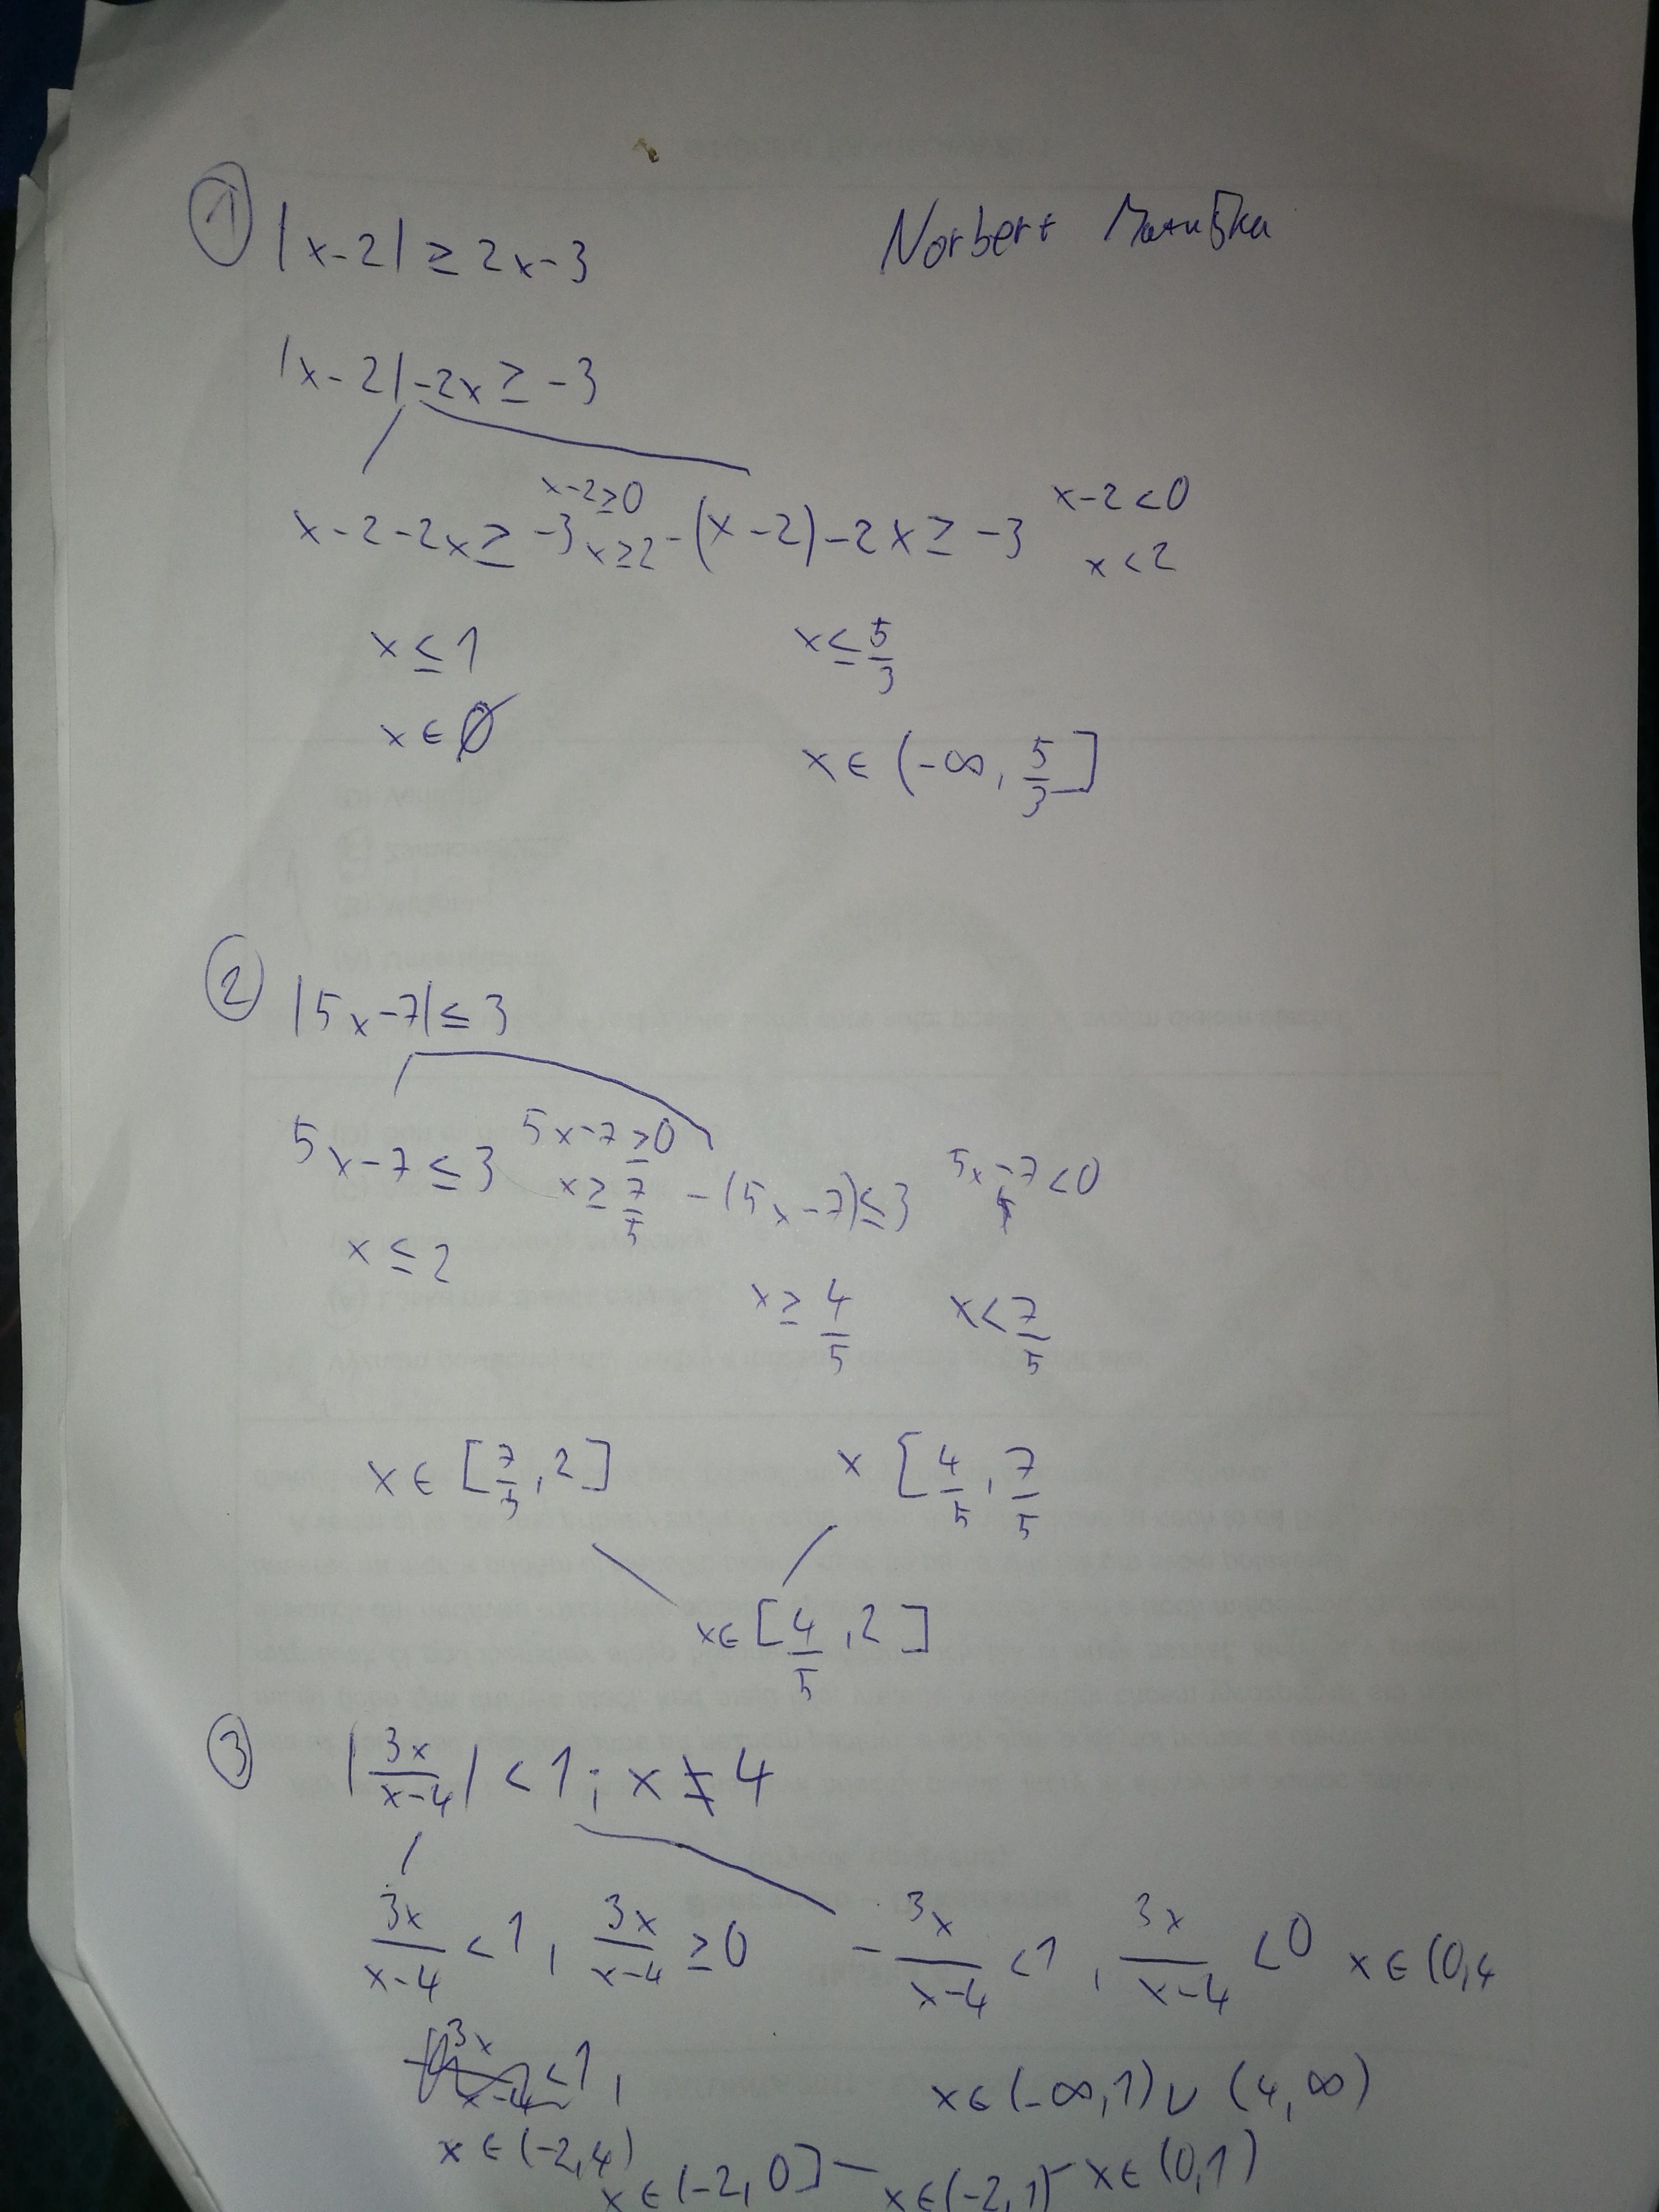 ① |x-2| ≥ 2x-3
Norbert
|x-2| -2x ≥ -3
x-2-2x ≥ -3 x-2≥0 x≥2 -(x-2)-2x ≥ -3 x-2<0 x<2
x ≤ 1 x ≤ 5/3
x ∈ ∅ x ∈ (-∞, 5/3]
② |5x-7| ≤ 3
5x-7 ≤ 3 5x-7≥0 x ≥ 7/5 -(5x-7) ≤ 3 5x-7<0
x ≤ 2 x ≥ 4/5 x < 7/5
x ∈ [7/5, 2] x [4/5, 7/5
x ∈ [4/5, 2]
③ |3x/(x-4)| < 1 ; x ≠ 4
3x/(x-4) < 1, 3x/(x-4) ≥ 0 -3x/(x-4) < 1, 3x/(x-4) < 0 x ∈ (0,4
3x/(x-4) < 1,
x ∈ (-∞,1) ∪ (4,∞)
x ∈ (-2,4)
x ∈ (-2,0] x ∈ (-2,1) x ∈ (0,1)